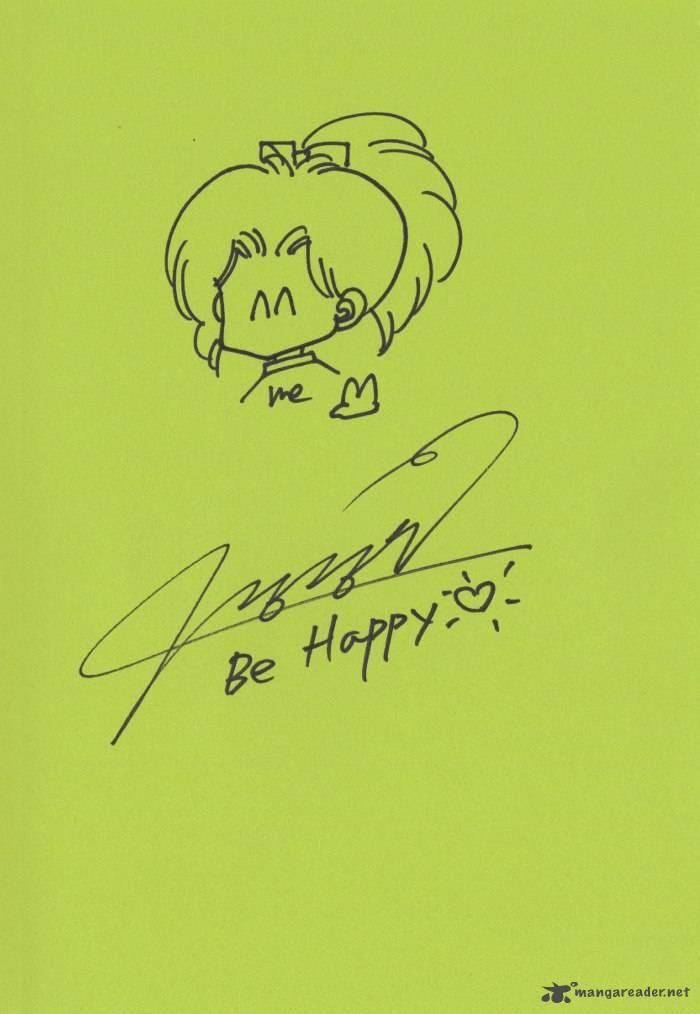 me
Be Happy
mangareader.net